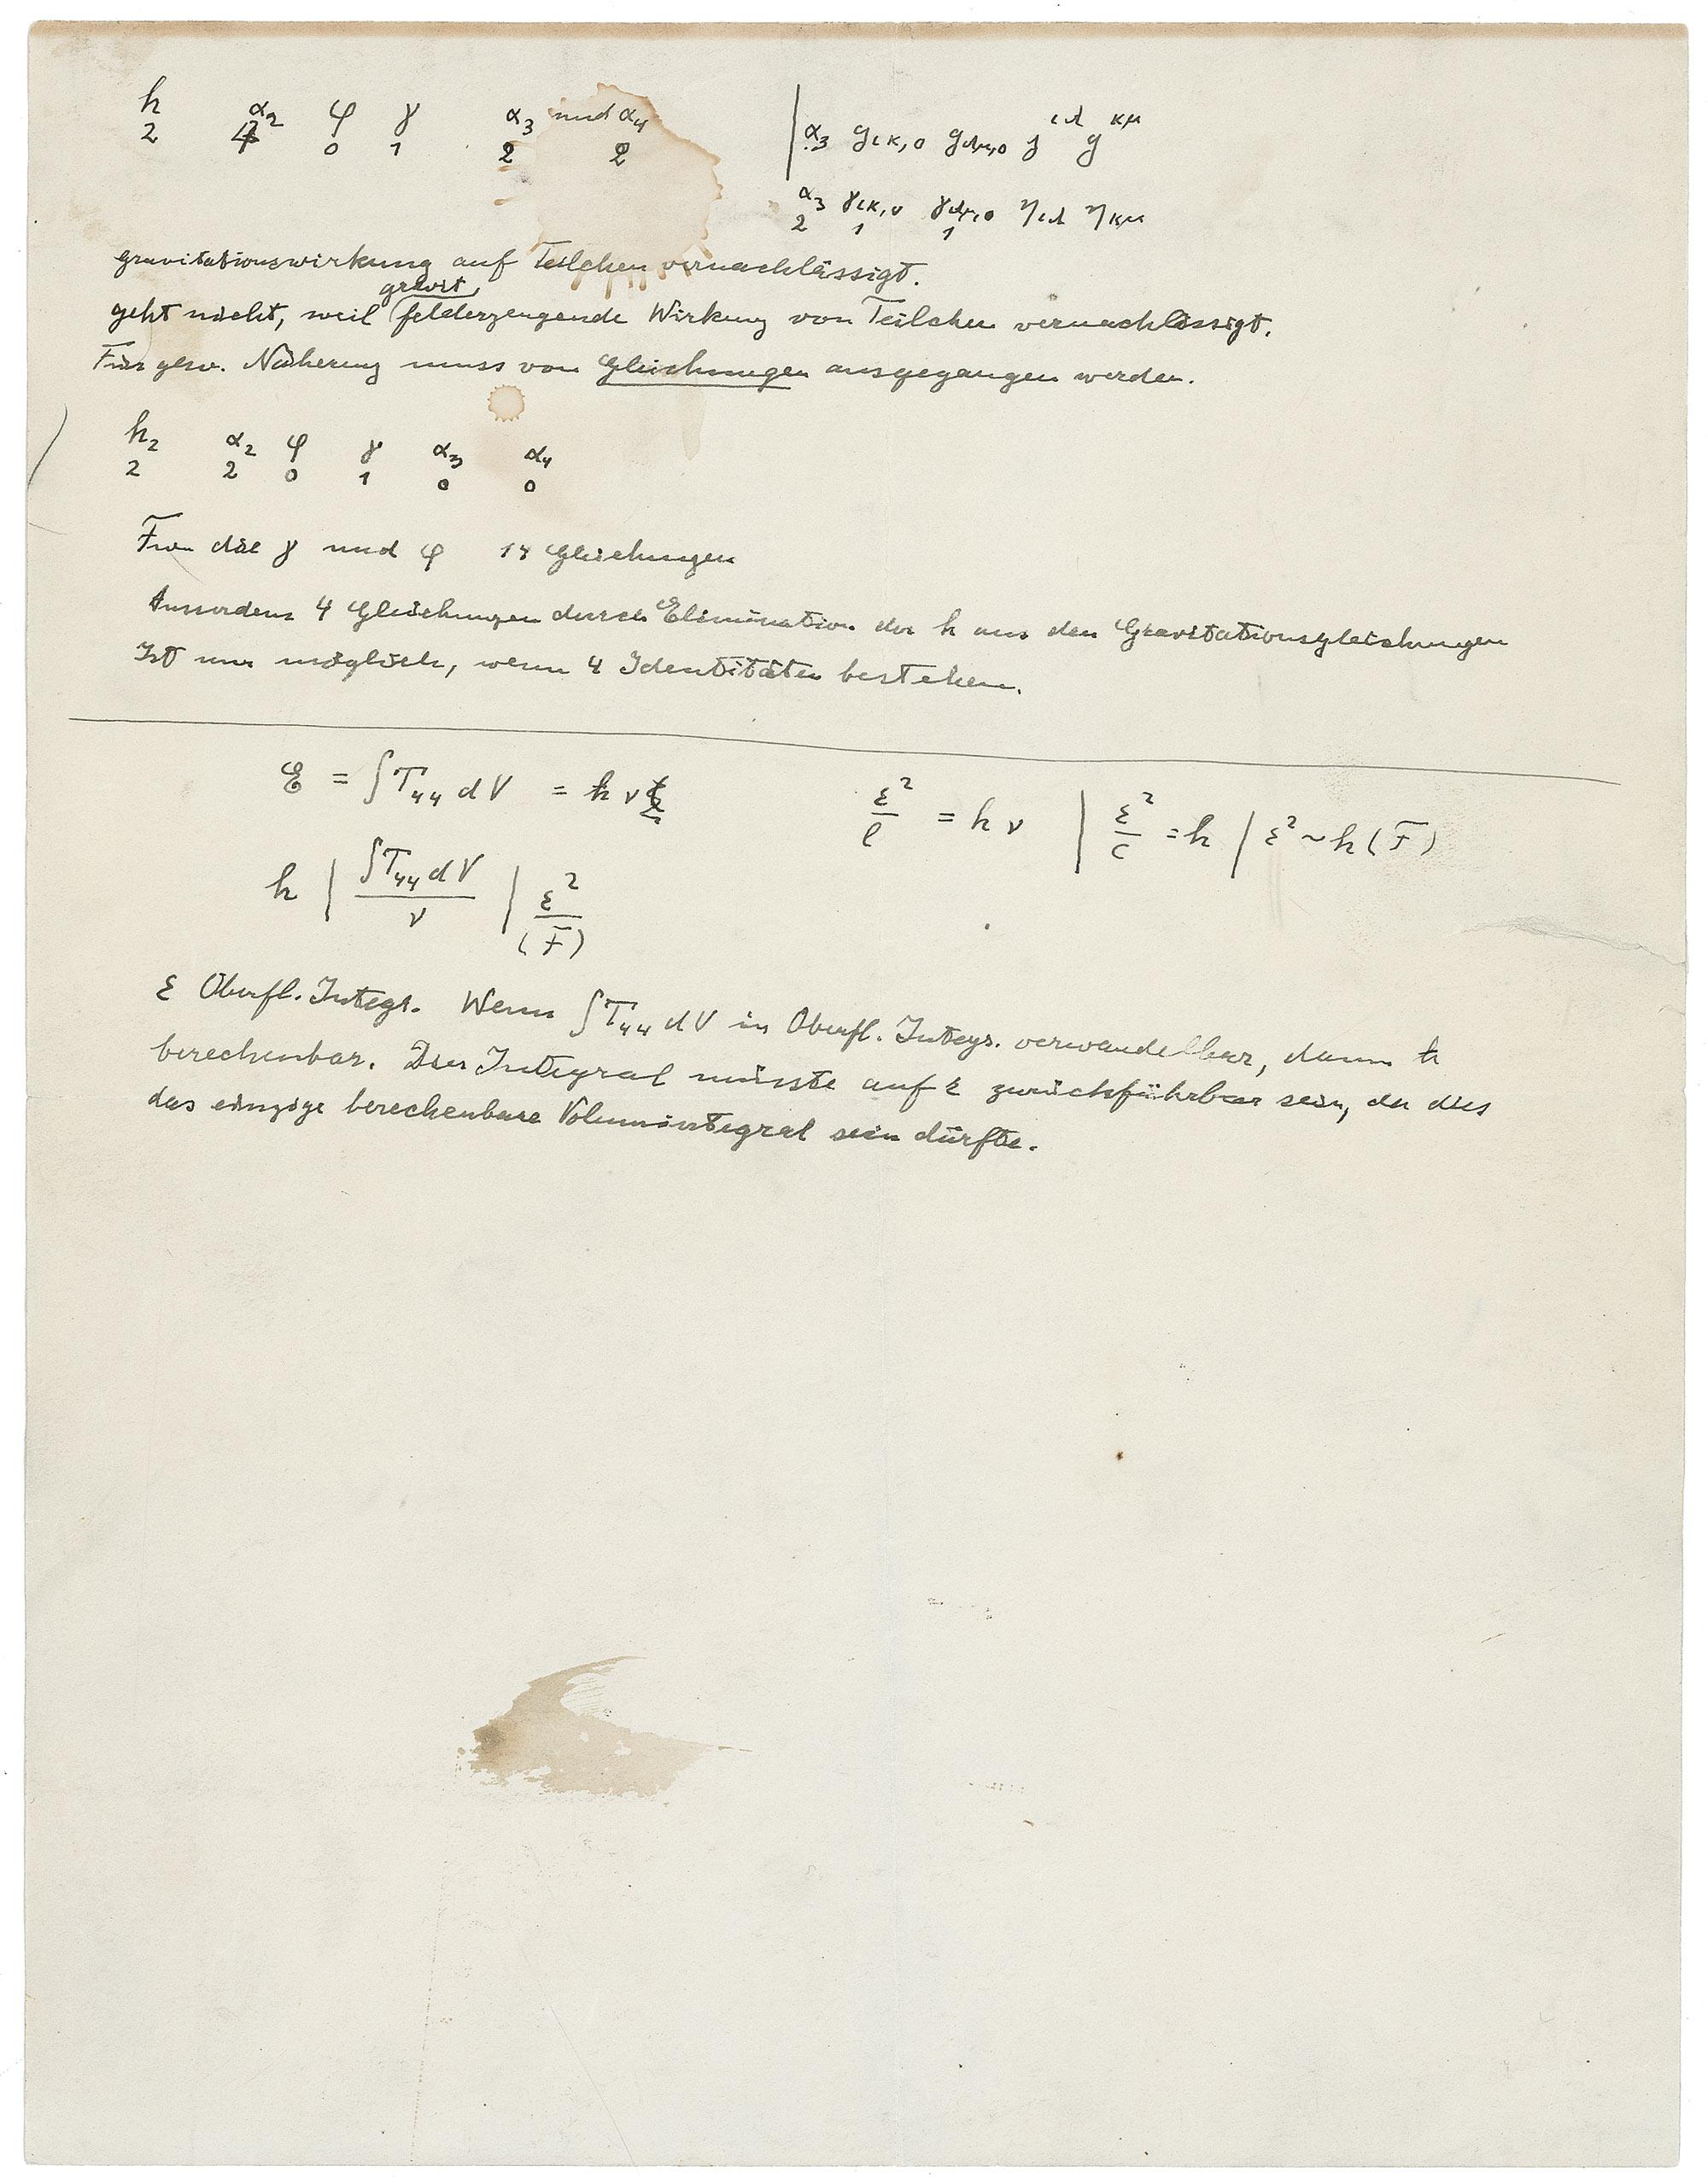 h α₂ φ γ α₃ und α₄ | α₃ gικ,0 gλμ,0 g^ιλ g^κμ
2 0 1 2 2
α₃ γικ,0 γλμ,0 ηιλ ηκμ
2 1 1
Gravitationswirkung auf Teilchen vernachlässigt.
gravit.
geht nicht, weil (felderzeugende Wirkung von Teilchen vernachlässigt.
Für gew. Näherung muss von Gleichungen ausgegangen werden.
h₂ α₂ φ γ α₃ α₄
2 2 0 1 0 0
Für die γ und φ 14 Gleichungen
Ausserdem 4 Gleichungen durch Elimination der h aus den Gravitationsgleichungen
Ist nur möglich, wenn 4 Identitäten bestehen.
𝔈 = ∫T₄₄ dV = h ν ε²/l = h ν | ε²/c = h | ε² ~ h (F)
h | ∫T₄₄ dV / ν | ε² / (F)
ε Oberfl. Integr. Wenn ∫T₄₄ dV in Oberfl. Integr. verwandelbar, dann h
berechenbar. Dies Integral müsste auf ε zurückführbar sein, da dies
das einzige berechenbare Volumintegral sein dürfte.